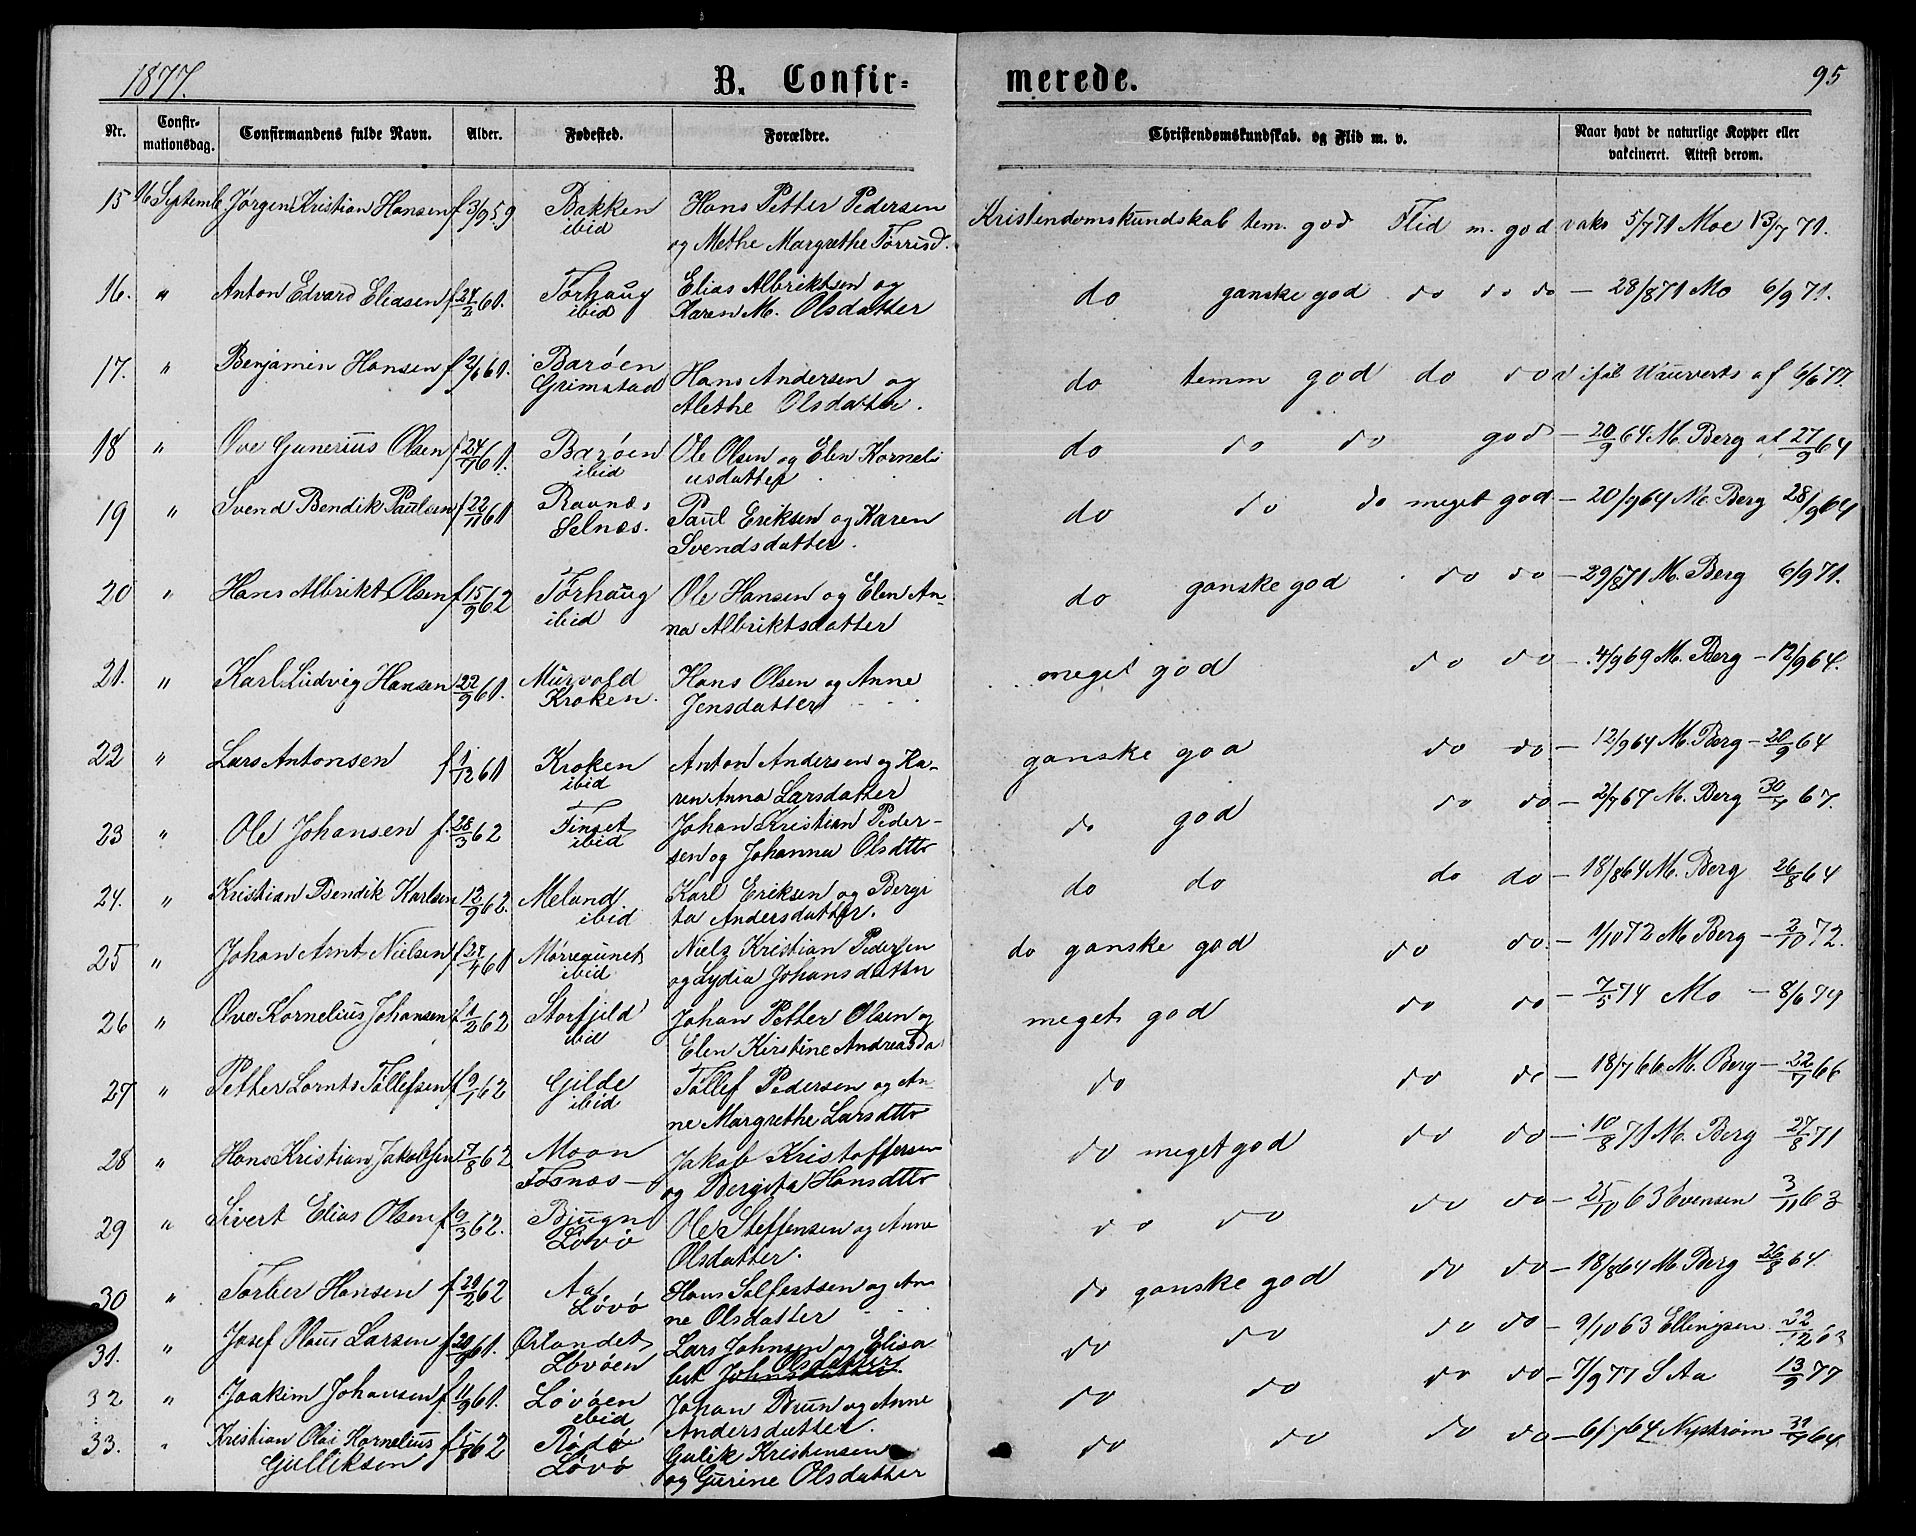 1877.
B. Confirmerede.
95
Nr.
Confirmationsdag.
Confirmandens fulde Navn.
Alder.
Fødested.
Forældre.
Christendomskundskab. og Flid m. v.
Naar havt de naturlige Kopper eller vakcineret. Attest derom.
15 16 Septemb Jørgen Kristian Hansen f 3/9 59 Bakken ibid Hans Petter Pedersen Kristendomskundskab tem. god Flid m. god vaks 5/7 71 Moe 13/7 71.
og Methe Margrethe Torrisd.
16. " Anton Edvard Eliasen f 61. Torhaug ibid Elias Albriktsen og do ganske god do do do — 28/8 71 Mo 6/9 71.
Karen M. Olsdatter
17. " Benjamin Hansen f 61. Barøen Grimstad Hans Andersen og do temm god do do 6/6 77.
Alethe Olsdatter.
18 " Ove Gunerius Olsen f 24/7 61. Barøen ibid Ole Olsen og Elen Korneli do do do god — 20/9 64 M. Berg af 27/9 64
usdatter
19 " Svend Bendik Paulsen f 22/11 60 Ravnæs Selnæs. Paul Eriksen og Karen do do do meget god — 20/9 64 M. Berg 28/9 64
Svendsdatter.
20 " Hans Albrikt Olsen f 15/9 62 Torhaug ibid Ole Hansen og Elen An- do ganske god do do — 29/8 71 M. Berg 6/9 71.
na Albriktsdatter
21. " Karl Ludvig Hansen 22/9 61. Murvold Kroken. Hans Olsen og Anne meget god do do — 4/9 69 M. Berg — 12/9 64.
Jensdatter
22 " Lars Antonsen f 1/12 61 Kroken ibid Anton Andersen og Ka- ganske god do do — 12/9 64 M. Berg — 20/9 64
ren Anna Larsdatter
23 " Ole Johansen f. 28/3 62 Finset ibid Johan Kristian Peder- do god do do — 2/7 67 M. Berg 30/7 67.
sen og Johanna Olsdttr
24. " Kristian Bendik Karlsen 12/9 62. Meland ibid Karl Eriksen og Bergi do do do do — 18/8 64 M. Berg 26/8 64
ta Andersdatter.
25 " Johan Arnt Nielsen f 61 ibid Niels Kristian Pedersen do ganske god do do. — 1/10 72 M. Berg — 2/10 72.
og Lydia Johansdatter
26 " Ove Kornelius Johansen f 1/2 62 Storfjeld ibid Johan Petter Olsen og meget god do do — 7/5 74 Mo — 8/6 74
Elen Kirstine Andreasda
27 " Petter Lornts Tollefsen f 9/1 62 Gilde ibid Tollef Pedersen og An- do do do — 18/7 66 M. Berg — 22/7 66
ne Margrethe Larsdttr
28 " Hans Kristian Jakobsen 17/8 62 Moan Fosnæs — Jakob Kristoffersen do meget god do do — 10/8 71 M. Berg 27/8 71
og Bergita Hansdttr
29 " Sivert Elias Olsen f 9/3 62. Bjugn Løvø Ole Steffensen og Anne do do do do — 25/10 63 Evensen 3/11 63
Olsdatter.
30 " Torber Hansen f 29/2 62 Aa Løvø Hans Solfestsen og An do ganske god do do — 18/8 64 M. Berg 26/8 64.
ne Olsdatter
31. " Josef Klaus Larsen f 20/9 61. Ørlandet Løvøen Lars Johnsen og Elisa do do do do — 9/10 63 Ellingsen 22/12 63
bet Johnsdatter Olsdatter
32 " Joakim Johansen f 11/9 61. Løvøen ibid Johan Brun og Anne do do do do — 7/9 77 S Aa 13/9 77
Andersdatter.
33. " Kristian Olai Hornelius f 5/8 62 Rødø Løvø Gulik Kristensen do do do do — 6/7 64 Nystrøm 31/7 64
Gulliksen og Gurine Olsdatter